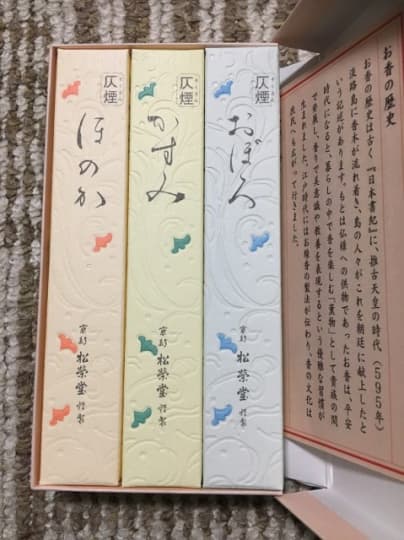 お香の歴史
お香の歴史は古く『日本書紀』に、推古天皇の時代(595年)
淡路島に香木が流れ着き、島の人々がこれを朝廷に献上したと
いう記述があります。もとは仏様への供物であったお香は、平安
時代になると、暮らしの中で香を楽しむ「薫物」として貴族の間
で発展し、香りで美意識や教養を表現するという優雅な習慣が
生まれました。江戸時代にはお線香の製法が伝わり、香の文化は
庶民へも広がって行きました。
仄煙
おぼろ
京都 松榮堂 謹製
仄煙
かすみ
京都 松榮堂 謹製
仄煙
ほのか
京都 松榮堂 謹製